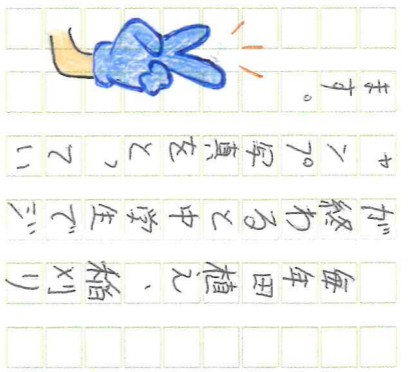 毎年田植え、稲刈り
が終わると中学生でジ
ャンプ写真をとってい
ます。